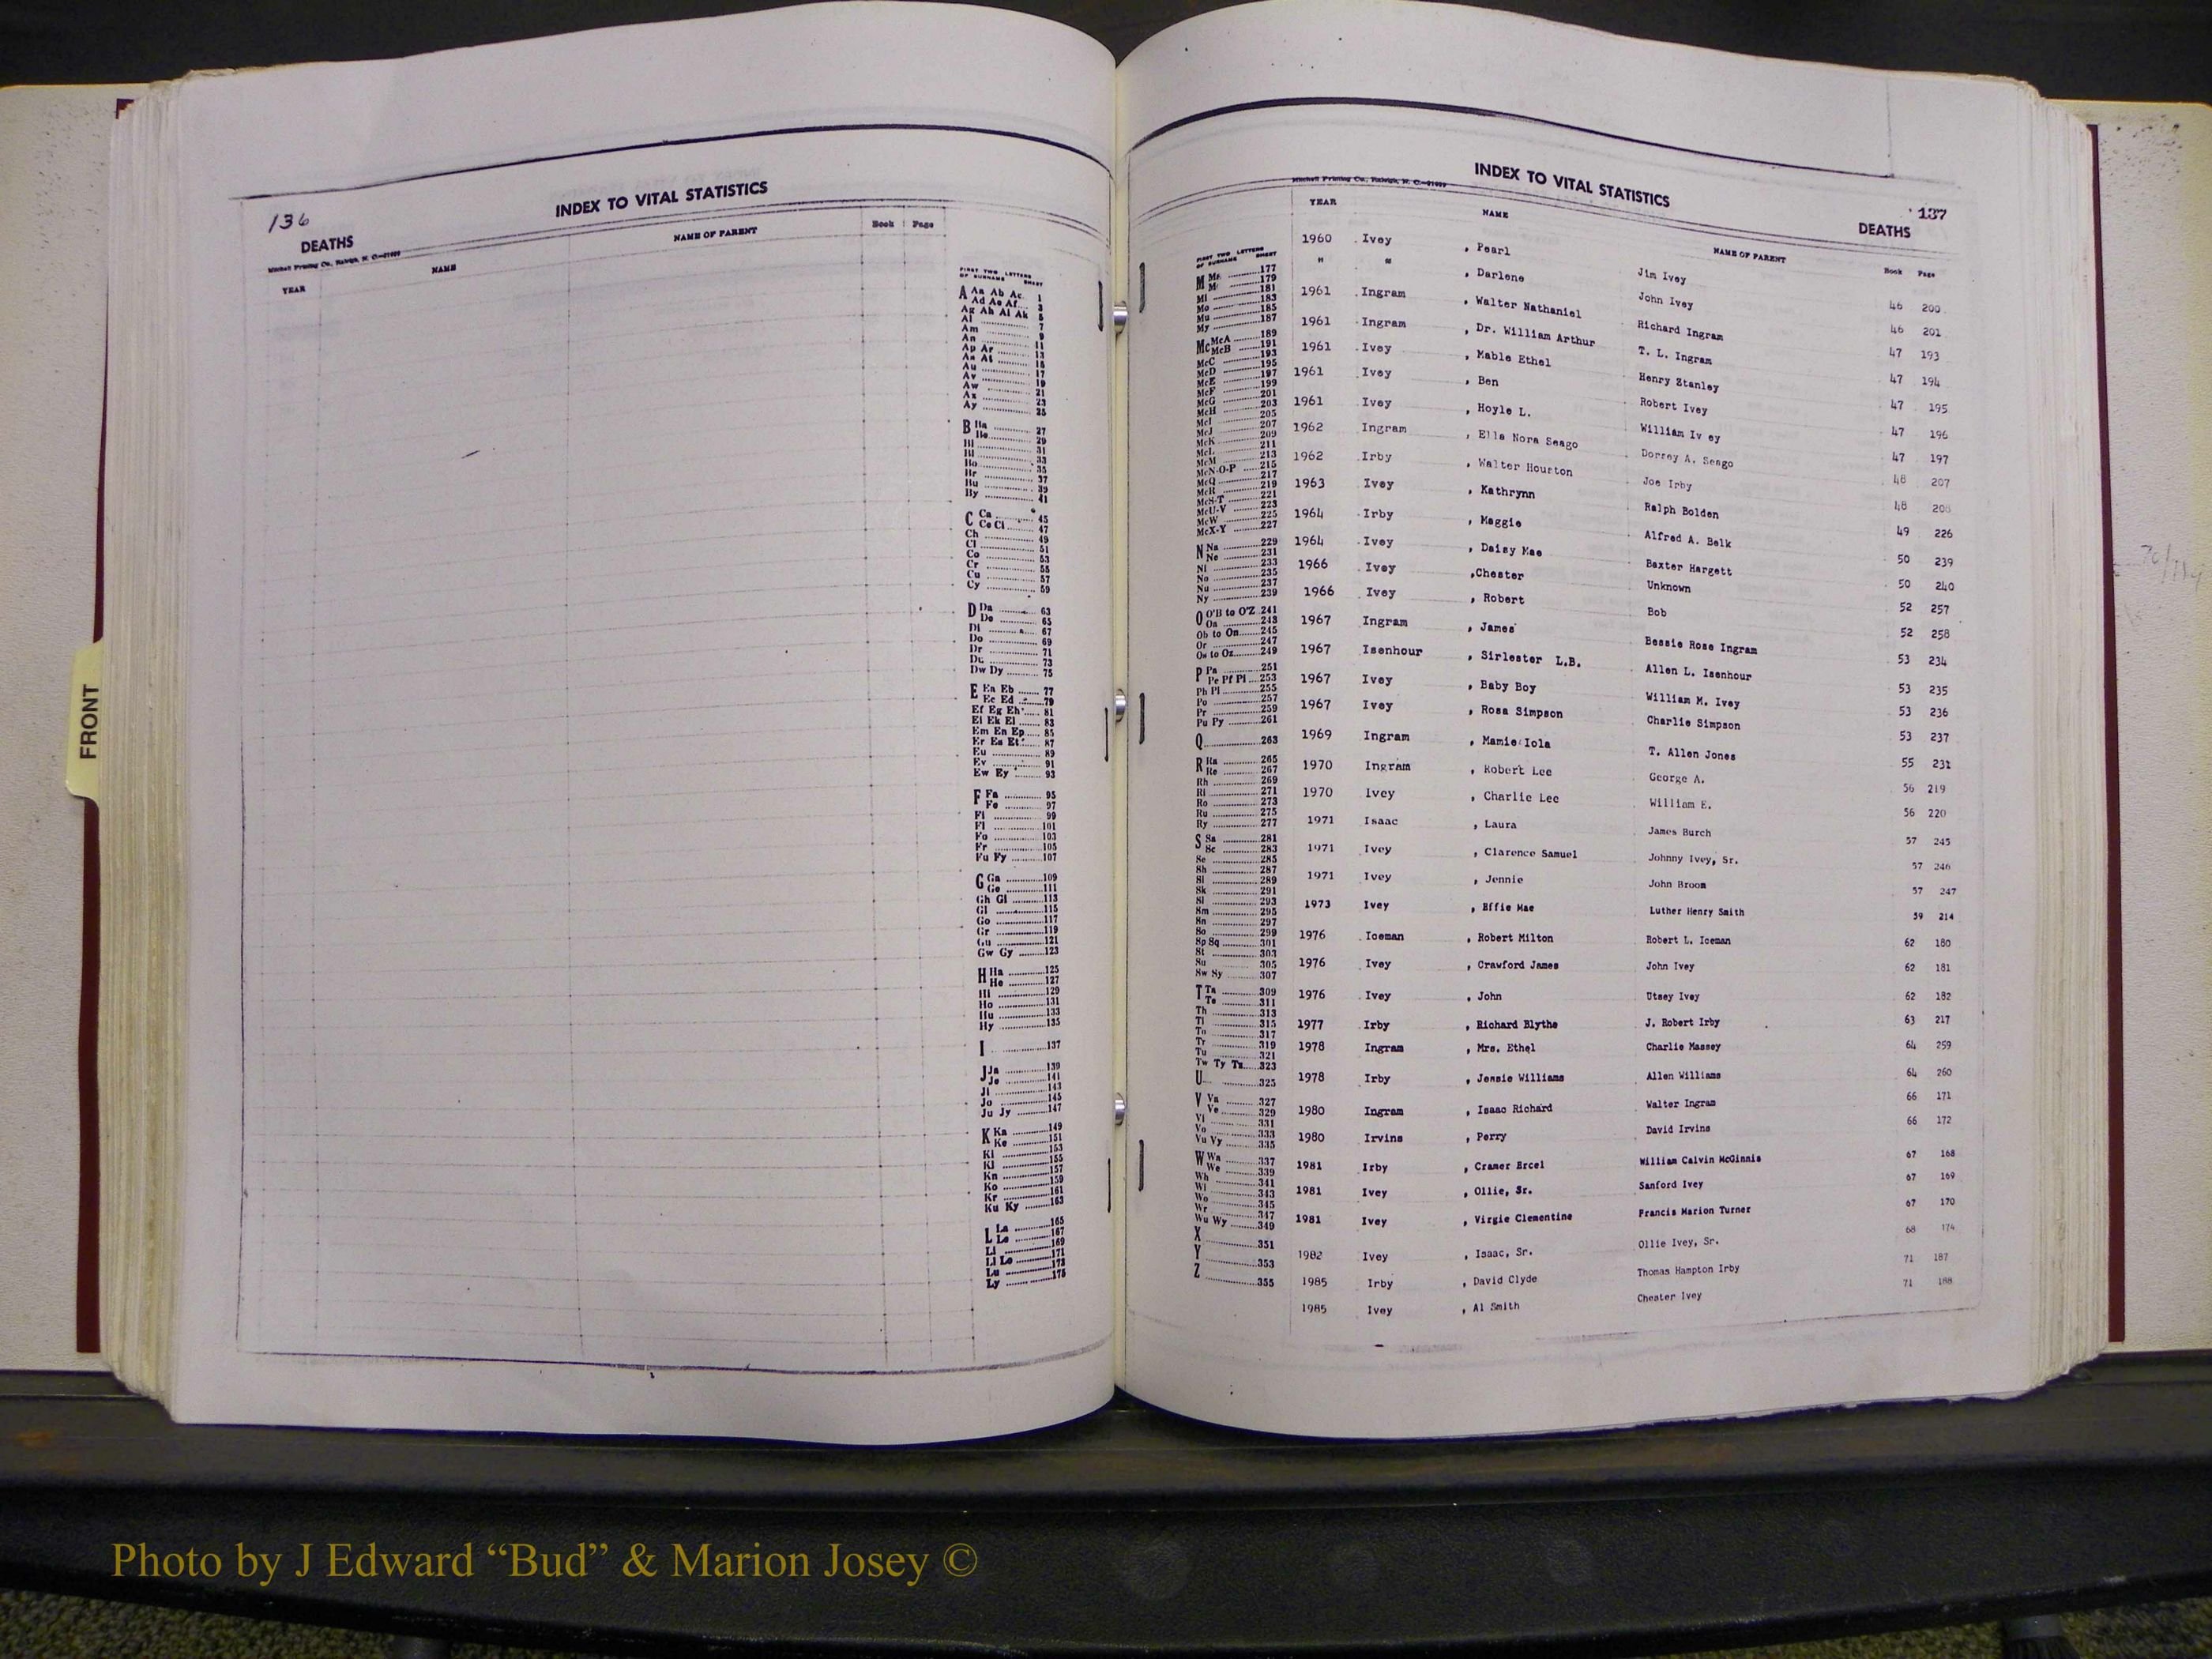 136
INDEX TO VITAL STATISTICS
DEATHS
Mitchell Printing Co., Raleigh, N. C.
YEAR NAME NAME OF PARENT Book Page
FIRST TWO LETTERS
OF SURNAME SHEET
A Aa Ab Ac 1
Ad Ae Af 3
Ag Ah Ai Ak 5
Al 7
Am 9
An 11
Ap Ar 13
As At 15
Au 17
Av 19
Aw 21
Ax 23
Ay 25
B Ba 27
Be 29
Bi 31
Bl 33
Bo 35
Br 37
Bu 39
By 41
C Ca 45
Ce Ci 47
Ch 49
Cl 51
Co 53
Cr 55
Cu 57
Cy 59
D Da 63
De 65
Di 67
Do 69
Dr 71
Du 73
Dw Dy 75
E Ea Eb 77
Ec Ed 79
Ef Eg Eh 81
Ei Ek El 83
Em En Ep 85
Er Es Et 87
Eu 89
Ev 91
Ew Ey 93
F Fa 95
Fe 97
Fi 99
Fl 101
Fo 103
Fr 105
Fu Fy 107
G Ga 109
Ge 111
Gh Gi 113
Gl 115
Go 117
Gr 119
Gu 121
Gw Gy 123
H Ha 125
He 127
Hi 129
Ho 131
Hu 133
Hy 135
I 137
J Ja 139
Je 141
Ji 143
Jo 145
Ju Jy 147
K Ka 149
Ke 151
Ki 153
Kl 155
Kn 157
Ko 159
Kr 161
Ku Ky 163
L La 165
Le 167
Li 169
Ll Lo 171
Lu 173
Ly 175
INDEX TO VITAL STATISTICS
137
DEATHS
Mitchell Printing Co., Raleigh, N. C.
YEAR NAME NAME OF PARENT Book Page
FIRST TWO LETTERS
OF SURNAME SHEET
M Ma 177
Me 179
Mi 181
Mo 183
Mu 185
My 187
Mc McA 189
McB 191
McC 193
McD 195
McE 197
McF 199
McG 201
McH 203
McI 205
McJ 207
McK 209
McL 211
McM 213
McN-O-P 215
McQ 217
McR 219
McS-T 221
McU-V 223
McW 225
McX-Y 227
N Na 229
Ne 231
Ni 233
No 235
Nu 237
Ny 239
O O'B to O'Z 241
Oa 243
Ob to On 245
Or 247
Os to Oz 249
P Pa 251
Pe Pf Pi 253
Ph Pl 255
Po 257
Pr 259
Pu Py 261
Q 263
R Ra 265
Re 267
Rh 269
Ri 271
Ro 273
Ru 275
Ry 277
S Sa 281
Sc 283
Se 285
Sh 287
Si 289
Sk 291
Sl 293
Sm 295
Sn 297
So 299
Sp Sq 301
St 303
Su 305
Sw Sy 307
T Ta 309
Te 311
Th 313
Ti 315
To 317
Tr 319
Tu 321
Tw Ty Tz 323
U 325
V Va 327
Ve 329
Vi 331
Vo 333
Vu Vy 335
W Wa 337
We 339
Wh 341
Wi 343
Wo 345
Wr 347
Wu Wy 349
X 351
Y 353
Z 355
1960 Ivey , Pearl Jim Ivey 46 200
" " , Darlene John Ivey 46 201
1961 Ingram , Walter Nathaniel Richard Ingram 47 193
1961 Ingram , Dr. William Arthur T. L. Ingram 47 194
1961 Ivey , Mable Ethel Henry Stanley 47 195
1961 Ivey , Ben Robert Ivey 47 196
1961 Ivey , Hoyle L. William Iv ey 47 197
1962 Ingram , Ella Nora Seago Dorsey A. Seago 48 207
1962 Irby , Walter Houston Joe Irby 48 208
1963 Ivey , Kathrynn Ralph Bolden 49 226
1964 Irby , Maggie Alfred A. Belk 50 239
1964 Ivey , Daisy Mae Baxter Hargett 50 240
1966 Ivey ,Chester Unknown 52 257
1966 Ivey , Robert Bob 52 258
1967 Ingram , James Bessie Rose Ingram 53 234
1967 Isenhour , Sirlester L.B. Allen L. Isenhour 53 235
1967 Ivey , Baby Boy William M. Ivey 53 236
1967 Ivey , Rosa Simpson Charlie Simpson 53 237
1969 Ingram , Mamie Iola T. Allen Jones 55 231
1970 Ingram , Robert Lee George A. 56 219
1970 Ivey , Charlie Lee William E. 56 220
1971 Isaac , Laura James Burch 57 245
1971 Ivey , Clarence Samuel Johnny Ivey, Sr. 57 246
1971 Ivey , Jennie John Broom 57 247
1973 Ivey , Effie Mae Luther Henry Smith 59 214
1976 Iceman , Robert Milton Robert L. Iceman 62 180
1976 Ivey , Crawford James John Ivey 62 181
1976 Ivey , John Utsey Ivey 62 182
1977 Irby , Richard Blythe J. Robert Irby 63 217
1978 Ingram , Mrs. Ethel Charlie Massey 64 259
1978 Irby , Jessie Williams Allen Williams 64 260
1980 Ingram , Isaac Richard Walter Ingram 66 171
1980 Irvins , Perry David Irvins 66 172
1981 Irby , Cramer Ercel William Calvin McGinnis 67 168
1981 Ivey , Ollie, Sr. Sanford Ivey 67 169
1981 Ivey , Virgie Clementine Francis Marion Turner 67 170
1982 Ivey , Isaac, Sr. Ollie Ivey, Sr. 68 174
1985 Irby , David Clyde Thomas Hampton Irby 71 187
1985 Ivey , Al Smith Chester Ivey 71 188
FRONT
Photo by J Edward “Bud” & Marion Josey ©